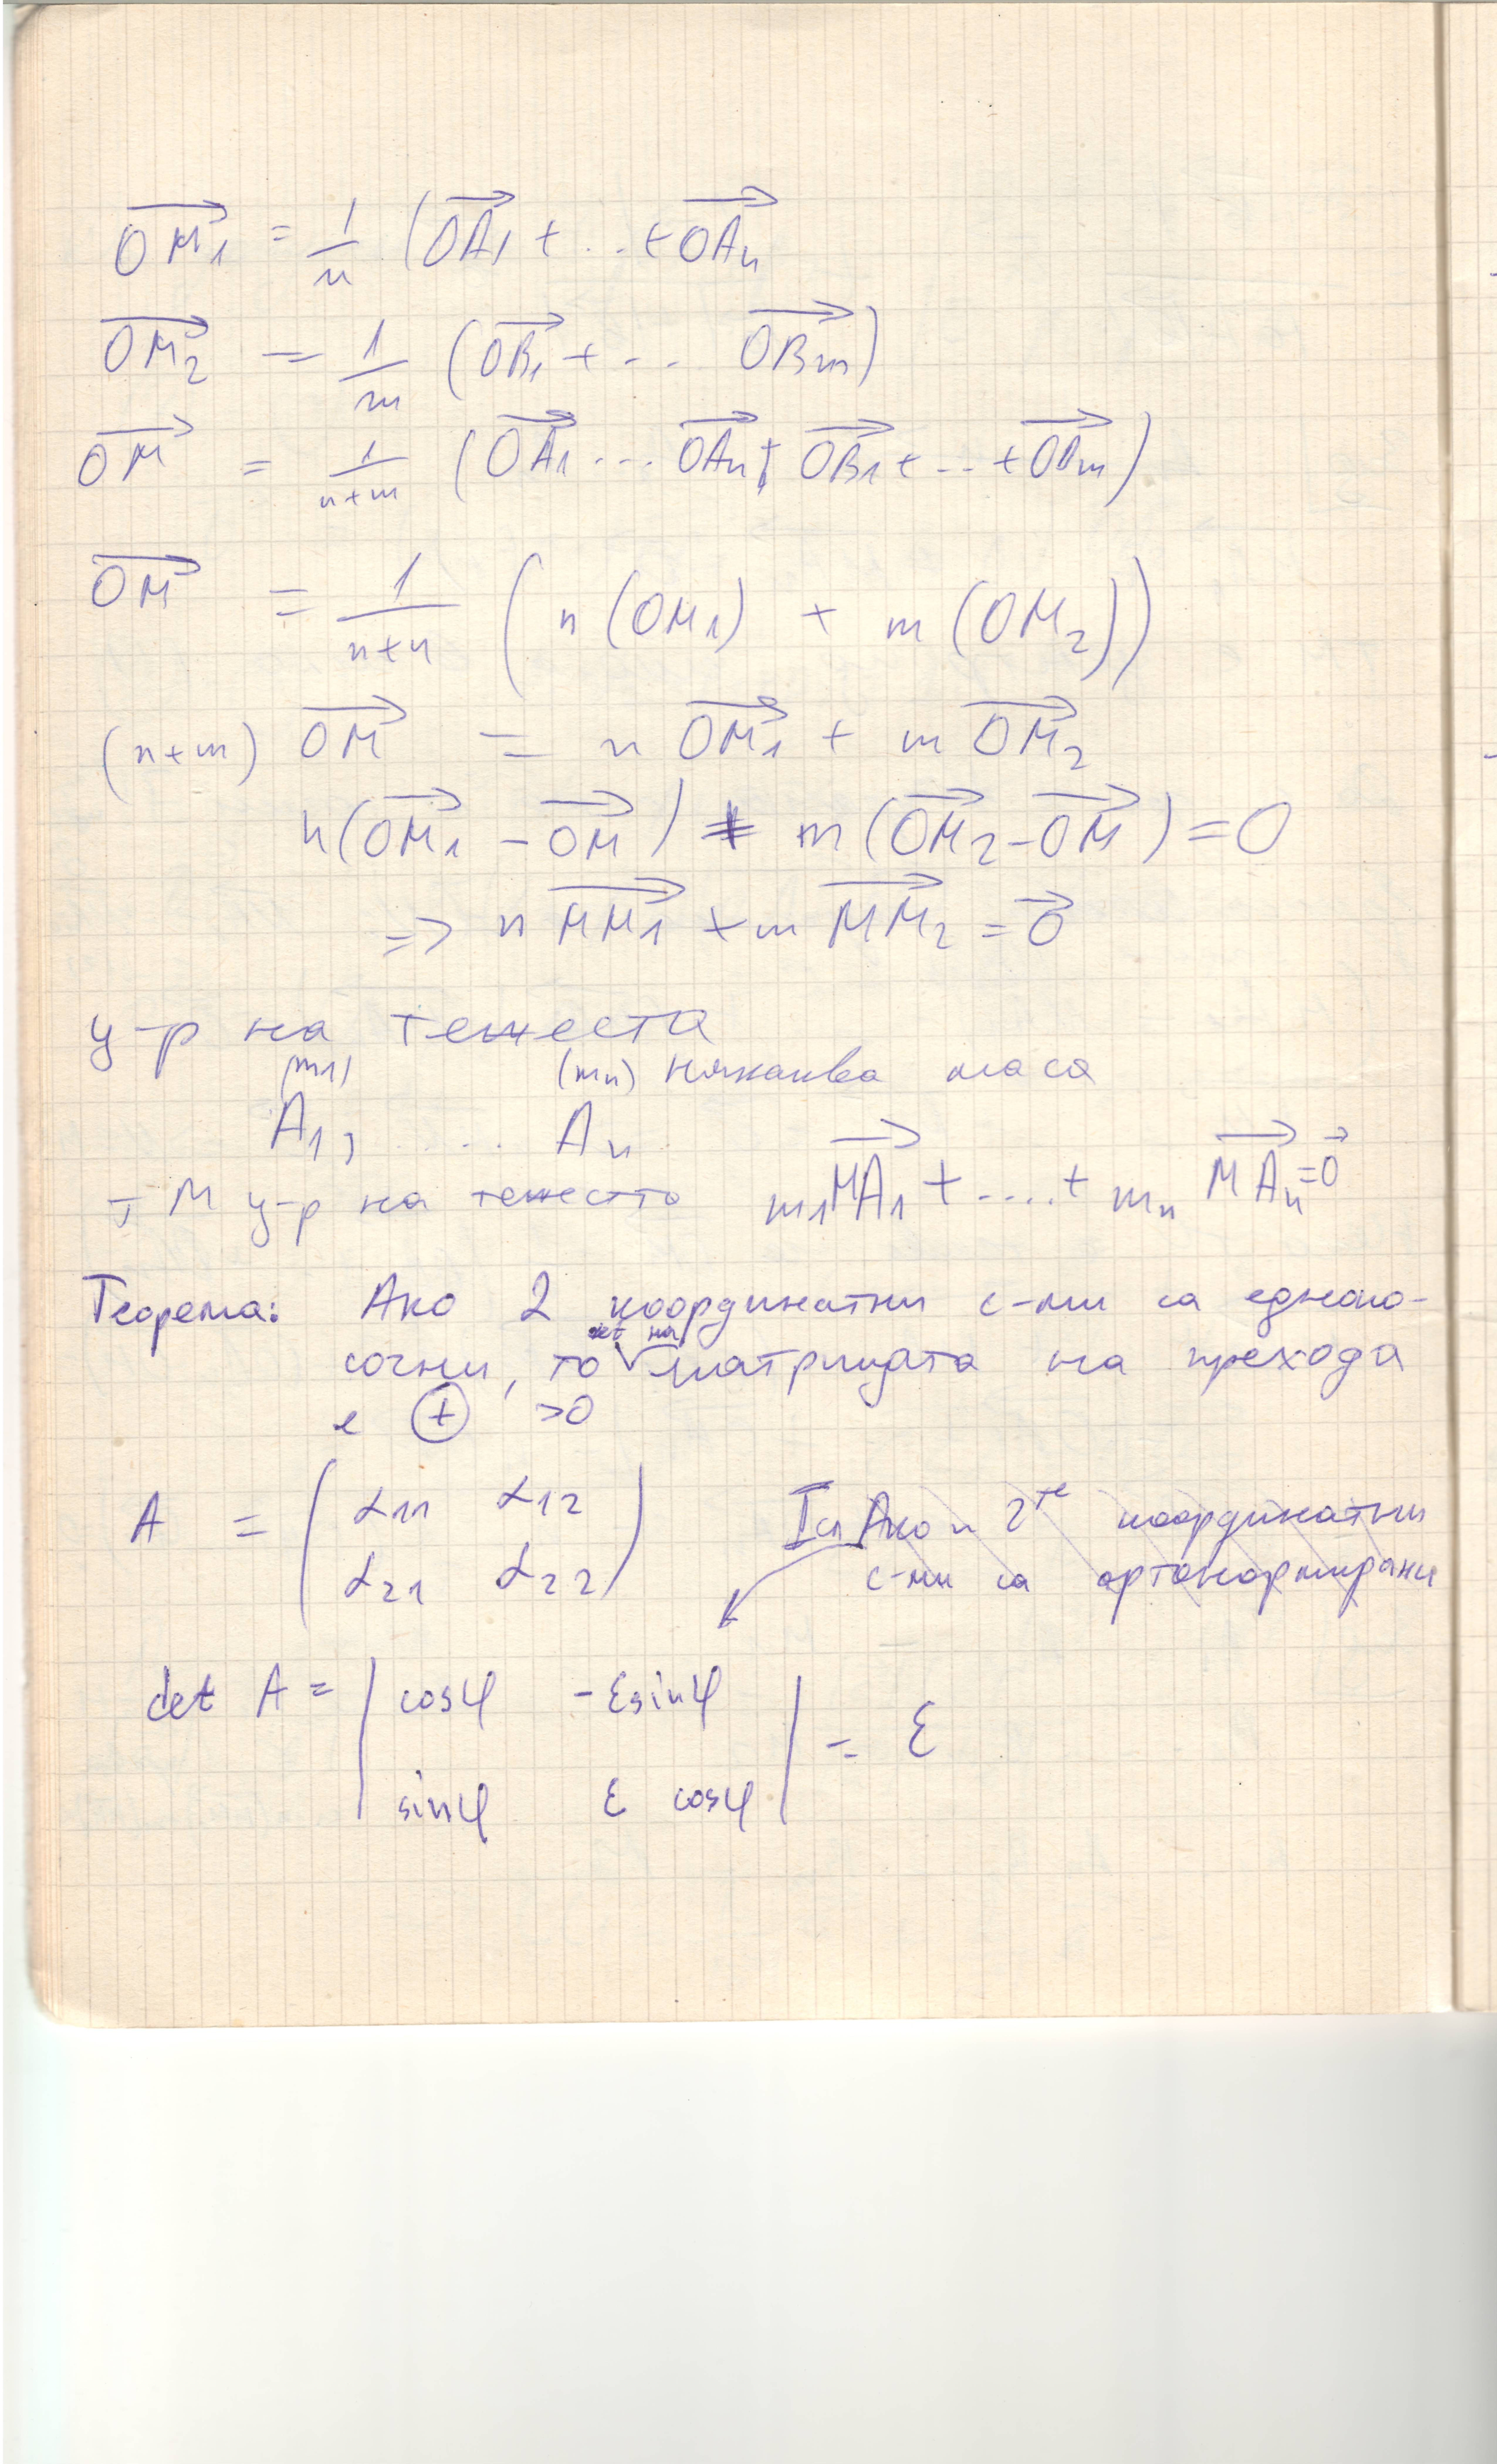 OM₁ = 1/n (OA₁ + ... + OAₙ
OM₂ = 1/m (OB₁ + ... OBₘ)
OM = 1/(n+m) (OA₁ ... OAₙ + OB₁ + ... + OBₘ)
OM = 1/(n+n) (n(OM₁) + m(OM₂))
(n+m) OM = n OM₁ + m OM₂
n(OM₁ - OM) + m(OM₂ - OM) = 0
=> n MM₁ + m MM₂ = 0
ц-р на тежеста
(m₁) (mₙ) някаква маса
A₁, ... Aₙ
т M ц-р на тежестта m₁MA₁ + .... + mₙ MAₙ = 0
Теорема: Ако 2 координатни с-ми са еднопо-
сочни, то det на матрицата на прехода
е + >0
A = (α₁₁ α₁₂
α₂₁ α₂₂)
I сл Ако и 2те координатни
с-ми са ортонормирани
det A = | cosφ -εsinφ
sinφ ε cosφ | = ε